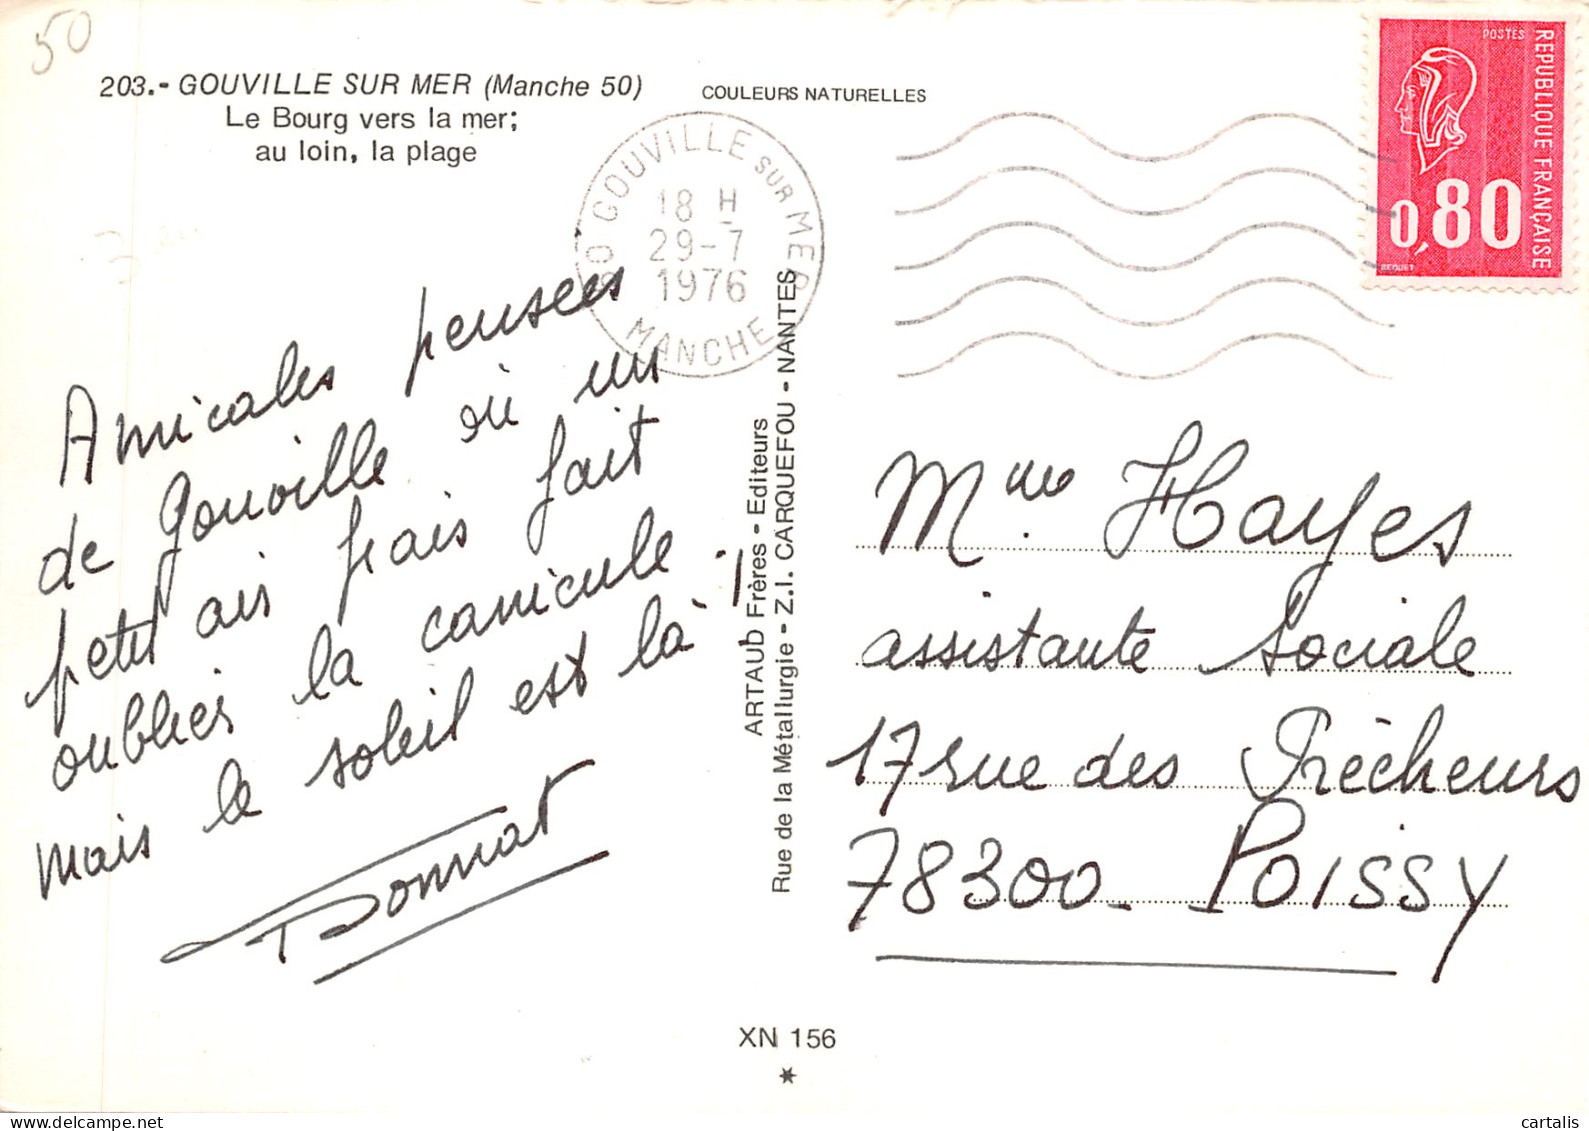 50
203.- GOUVILLE SUR MER (Manche 50)
Le Bourg vers la mer;
au loin, la plage
COULEURS NATURELLES
50 GOUVILLE SUR MER
18 H
29-7
1976
MANCHE
POSTES
REPUBLIQUE FRANÇAISE
0,80
BEQUET
Amicales pensées
de Gouville où un
petit air frais fait
oublier la canicule.
mais le soleil est là !
Bonnat
ARTAUD Frères - Editeurs
Rue de la Métallurgie - Z.I. CARQUEFOU - NANTES
Mme Hayes
assistante sociale
17 rue des Prêcheurs
78300 - POISSY
XN 156
cartalis